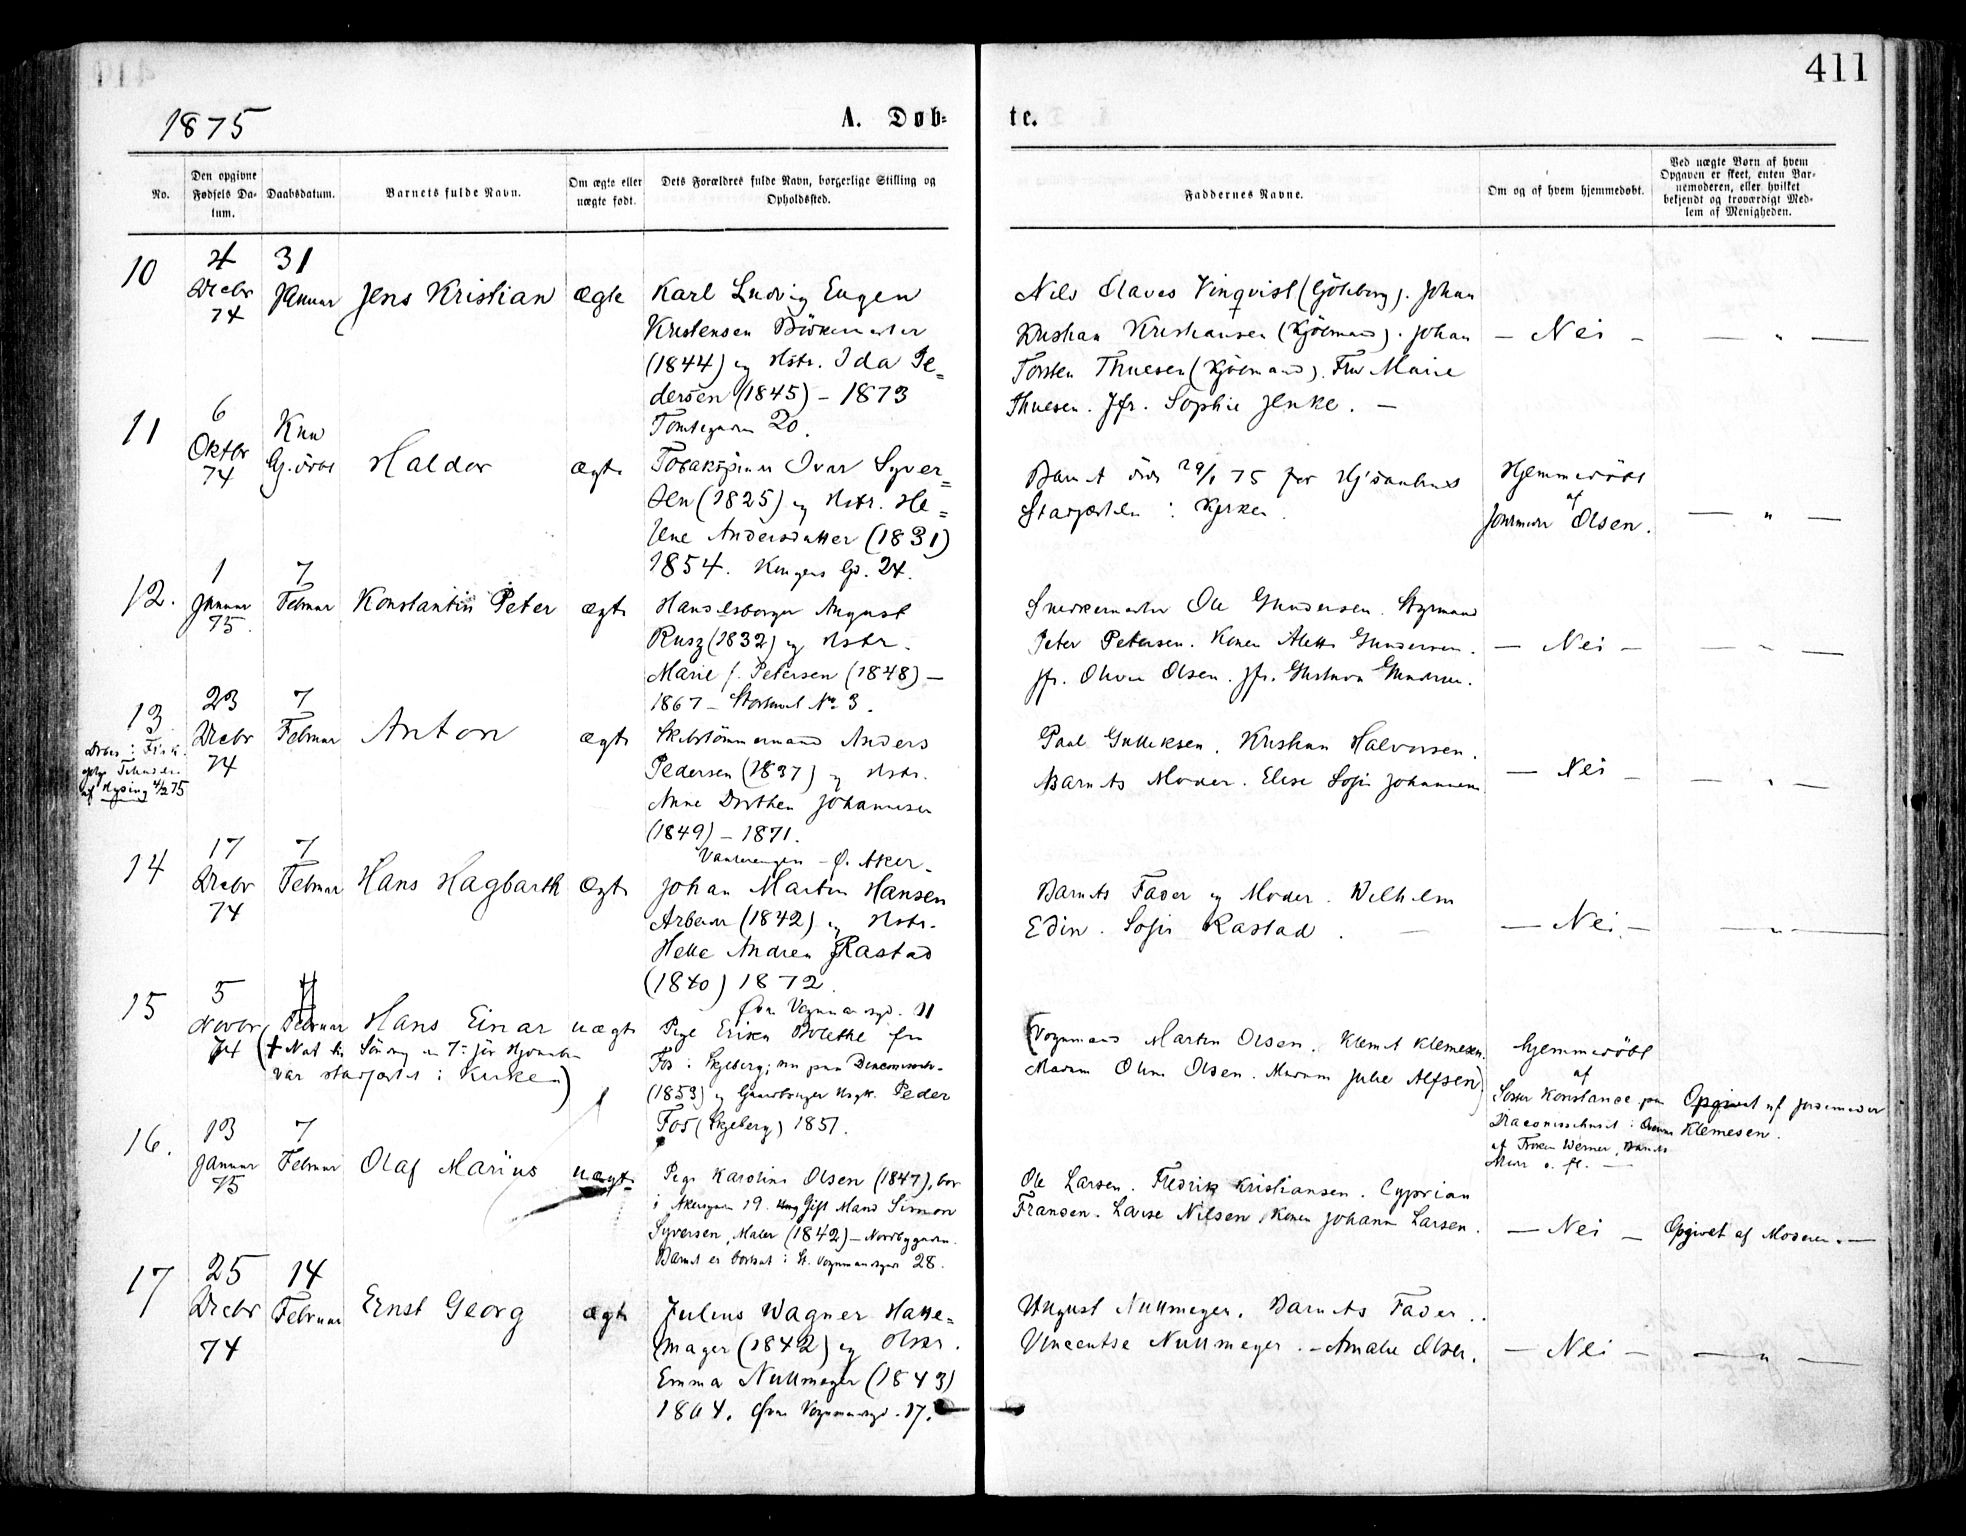 411
1875
A. Døb-
te.
No.
Den opgivne Fødsels Da-
tum.
Daabsdatum.
Barnets fulde Navn.
Om ægte eller
uægte født.
Dets Forældres fulde Navn, borgerlige Stilling og
Opholdssted.
Faddernes Navne.
Om og af hvem hjemmedøbt.
Ved uægte Børn af hvem
Opgaven er skeet, enten Bar-
nemoderen, eller hvilket
bekjendt og troværdigt Med-
lem af Menigheden.
10
4 Decbr 74
31 Januar
Jens Kristian
ægte
Karl Ludvig Eugen
Kristensen
(1844) og Hstr. Ida Pe-
dersen (1845) – 1873
Tomtegaden 20.
Nils Olaves Vinqvist (Göteborg). Johan
Kristian Kristiansen (Kjöbmand). Johan
Torsten Thuesen (Kjöbmand). Fru Marie
Thuesen. Jfr. Sophie Jenke. –
– Nei –
– " –
11
6 Oktbr 74
Kun
Hj. döbt
Haldor
ægte
Tobakspinder Ivar Syver-
sen (1825) og Hstr. He-
lene Andersdatter (1831)
1854. Kongens Gd. 24.
Barnet död 29/1 75 för Hj.daabens
Stadfæstelse i Kirken.
Hjemmedöbt
af
Jordmoder Olsen.
– " –
12.
1 Januar 75.
7 Februar
Konstantin Peter
ægte
Handelsborger August
Rusz (1832) og Hstr.
Marie f. Petersen (1848) –
1867 – Storthvet No 3.
Snedkermester Ole Gundersen. Styrmand
Peter Petersen. Konen Alette Gundersen.
Jfr. Olivia Olsen. Jfr. Gustava Gundersen.
– Nei –
– " –
13
af Hysing 4/2 75
23 Decbr 74
7 Februar
Anton
ægte
Skibstömmermand Anders
Pedersen (1837) og Hstr.
Anne Dorthea Johannesen
(1849) – 1871.
– Ø. Aker.
Paul Gulliksen. Kristian Halvorsen.
Barnets Moder. Elise Sofie Johannesen
– Nei –
– " –
14
17 Decbr 74
7 Februar
Hans Hagbarth
ægte
Johan Martin Hansen
Arbeider (1842) og Hstr.
Helle Andrea Rastad
(1840) 1872.
Øvre Vognmandsgd. 11
Barnets Fader og Moder. Wilhelm
Edin. Sofie Rastad. –
– Nei. –
– " –
15
5 Novbr 74
7 Februar
Hans Einar
uægte
(† Nat til Söndag den 7de för Hj.daaben
var stadfæstet i Kirken)
Pige Erika Bolethe fra
Fos i Skjeberg; nu paa Diaconisseh.
(1853) og Gaardbruger Ungk. Peder
Fos (Skjeberg) 1851.
(Vognmand Martin Olsen. Klemet Klemesen.
Madam Oline Olsen. Madam Julie Alfsen)
Hjemmedöbt
af
Söster Konstance paa
Diaconissehuset i Overvær
af Fröken Werner, Barnets
Moder o. fl. –
Opgivet af Jordemoder
Klemesen.
16.
13 Januar 75
7 Februar
Olaf Marius
uægte
Pige Karoline Olsen (1847), bor
i Akersgaden 19. Gift Mand Simon
Syversen, Maler (1842) – Nordbygaden.
Barnet er bortsat i St. Vognmandsgade 28.
Ole Larsen. Fredrik Kristiansen. Cyprian
Fransen. Lovise Nilsen, Konen Johanne Larsen.
– Nei –
Opgivet af Moderen. –
17
25 Decbr 74
14 Februar
Ernst Georg
ægte
Julius Wagner Hatte-
mager (1842) og Hstr.
Emma Nullmeyer (1843)
1864. Øvre Vognmandsgd. 17.
August Nullmeyer. Barnets Fader.
Vincentse Nullmeyer. – Amalie Olsen.
– Nei –
– " –